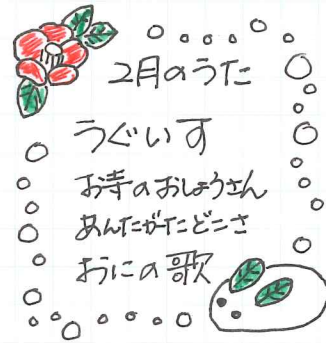 2月のうた
うぐいす
お寺のおしょうさん
あんたがたどこさ
おにの歌